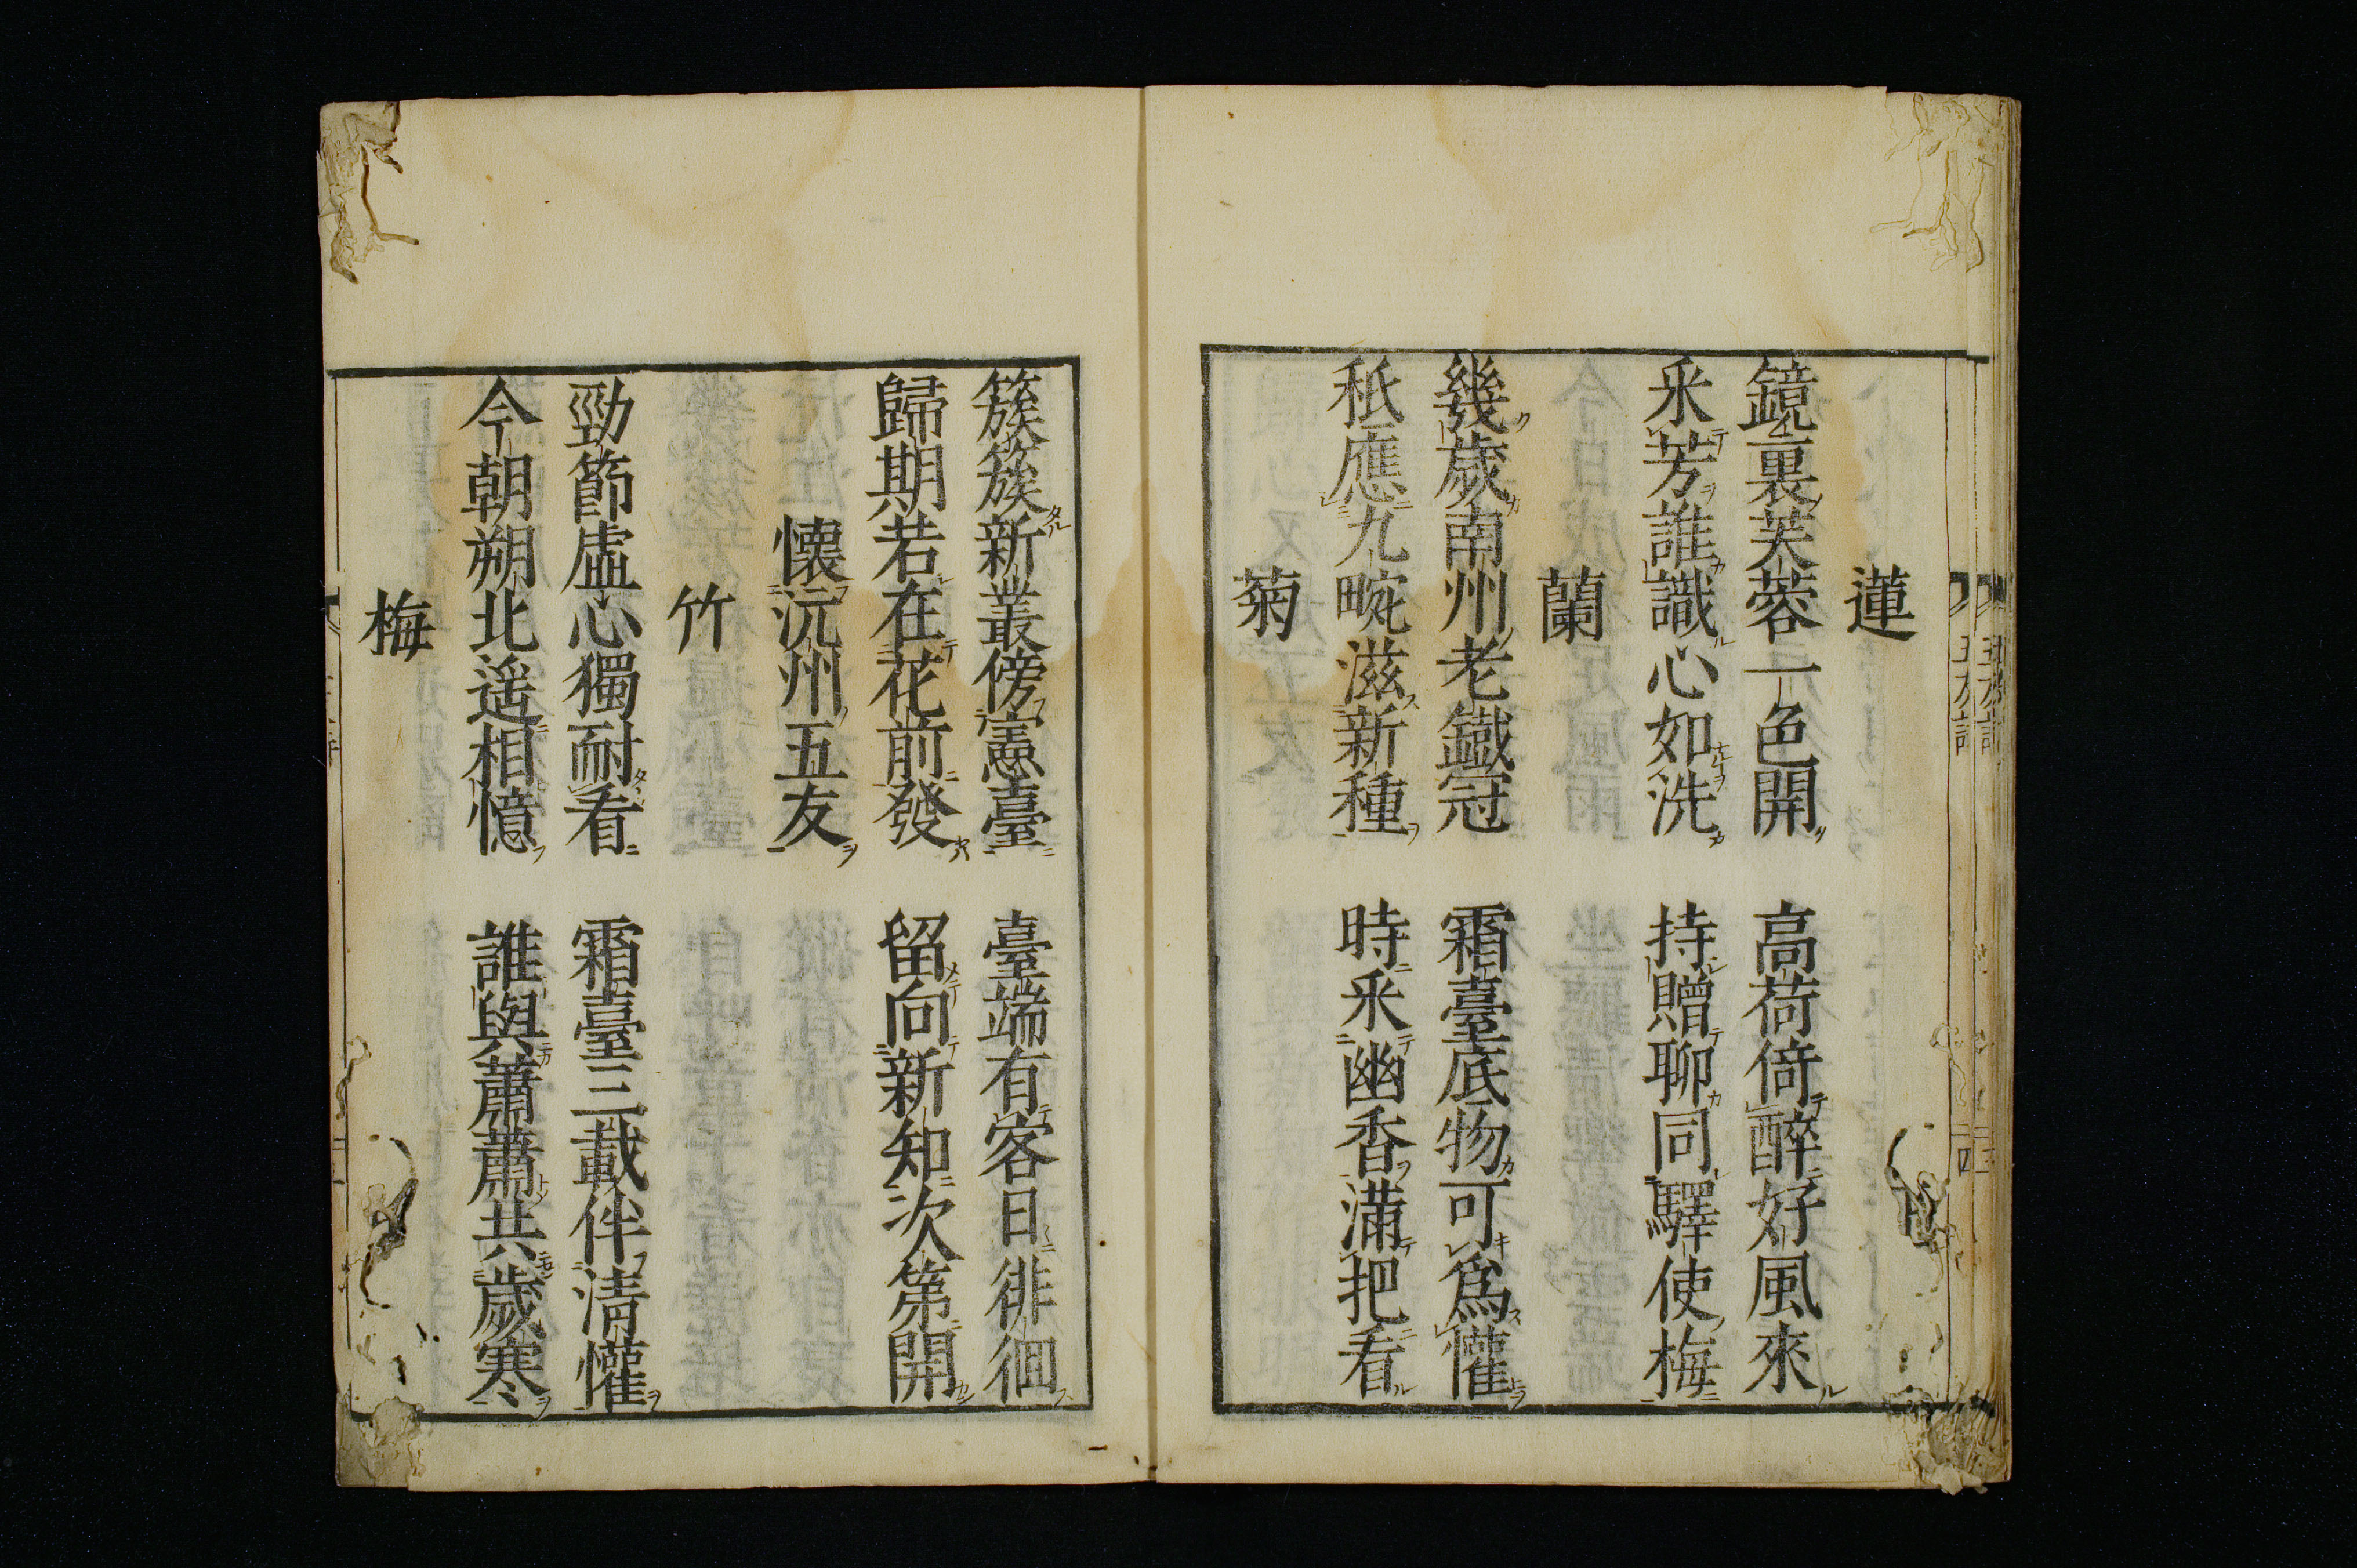 蓮
鏡裏芙蓉一色開　高荷倚醉好風來
采芳誰識心如洗　持贈聊同驛使梅
蘭
幾歲南州老鐵冠　霜臺底物可爲懽
秖應九畹滋新種　時采幽香滿把看
菊
簇簇新叢傍憲臺　臺端有客日徘徊
歸期若在花前發　留向新知次第開
懷沅州五友
竹
勁節虛心獨耐看　霜臺三載伴清懽
今朝朔北遥相憶　誰與蕭蕭共歲寒
梅